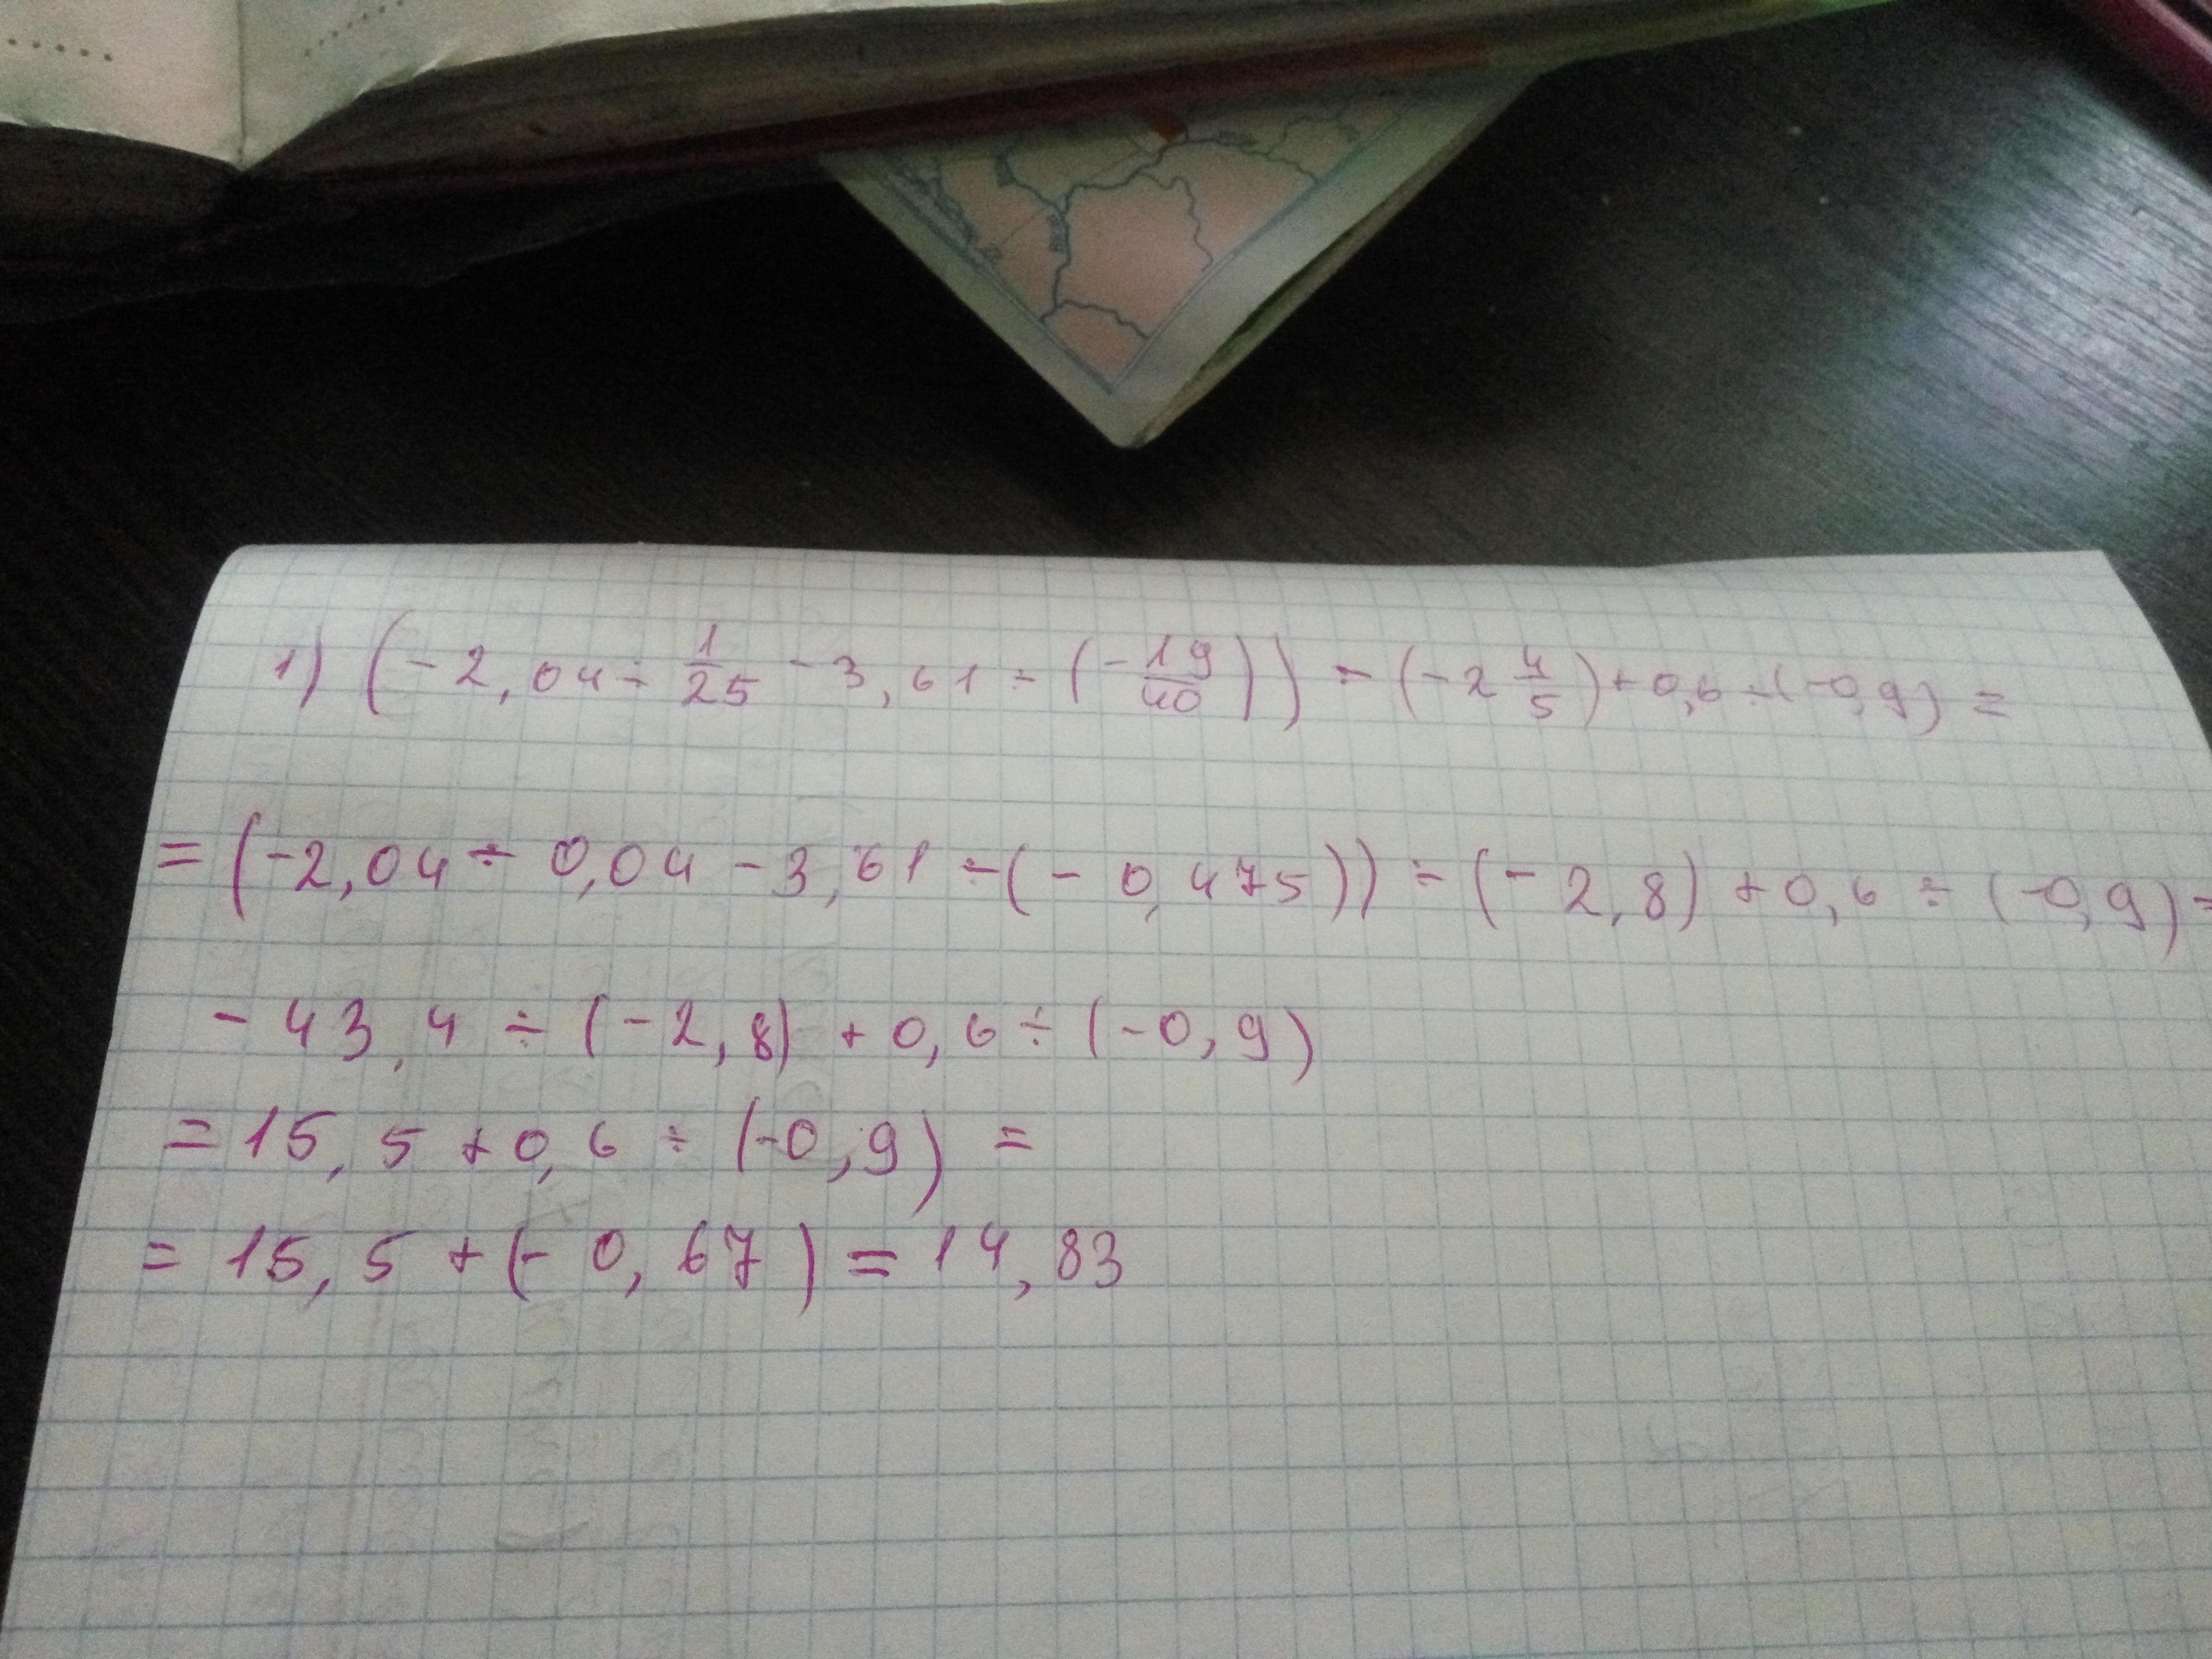 1) (-2,04 ÷ 1/25 - 3,61 ÷ (-19/40)) ÷ (-2 4/5) + 0,6 ÷ (-0,9) =
= (-2,04 ÷ 0,04 - 3,61 ÷ (-0,475)) ÷ (-2,8) + 0,6 ÷ (-0,9) =
-43,4 ÷ (-2,8) + 0,6 ÷ (-0,9)
= 15,5 + 0,6 ÷ (-0,9) =
= 15,5 + (-0,67) = 14,83